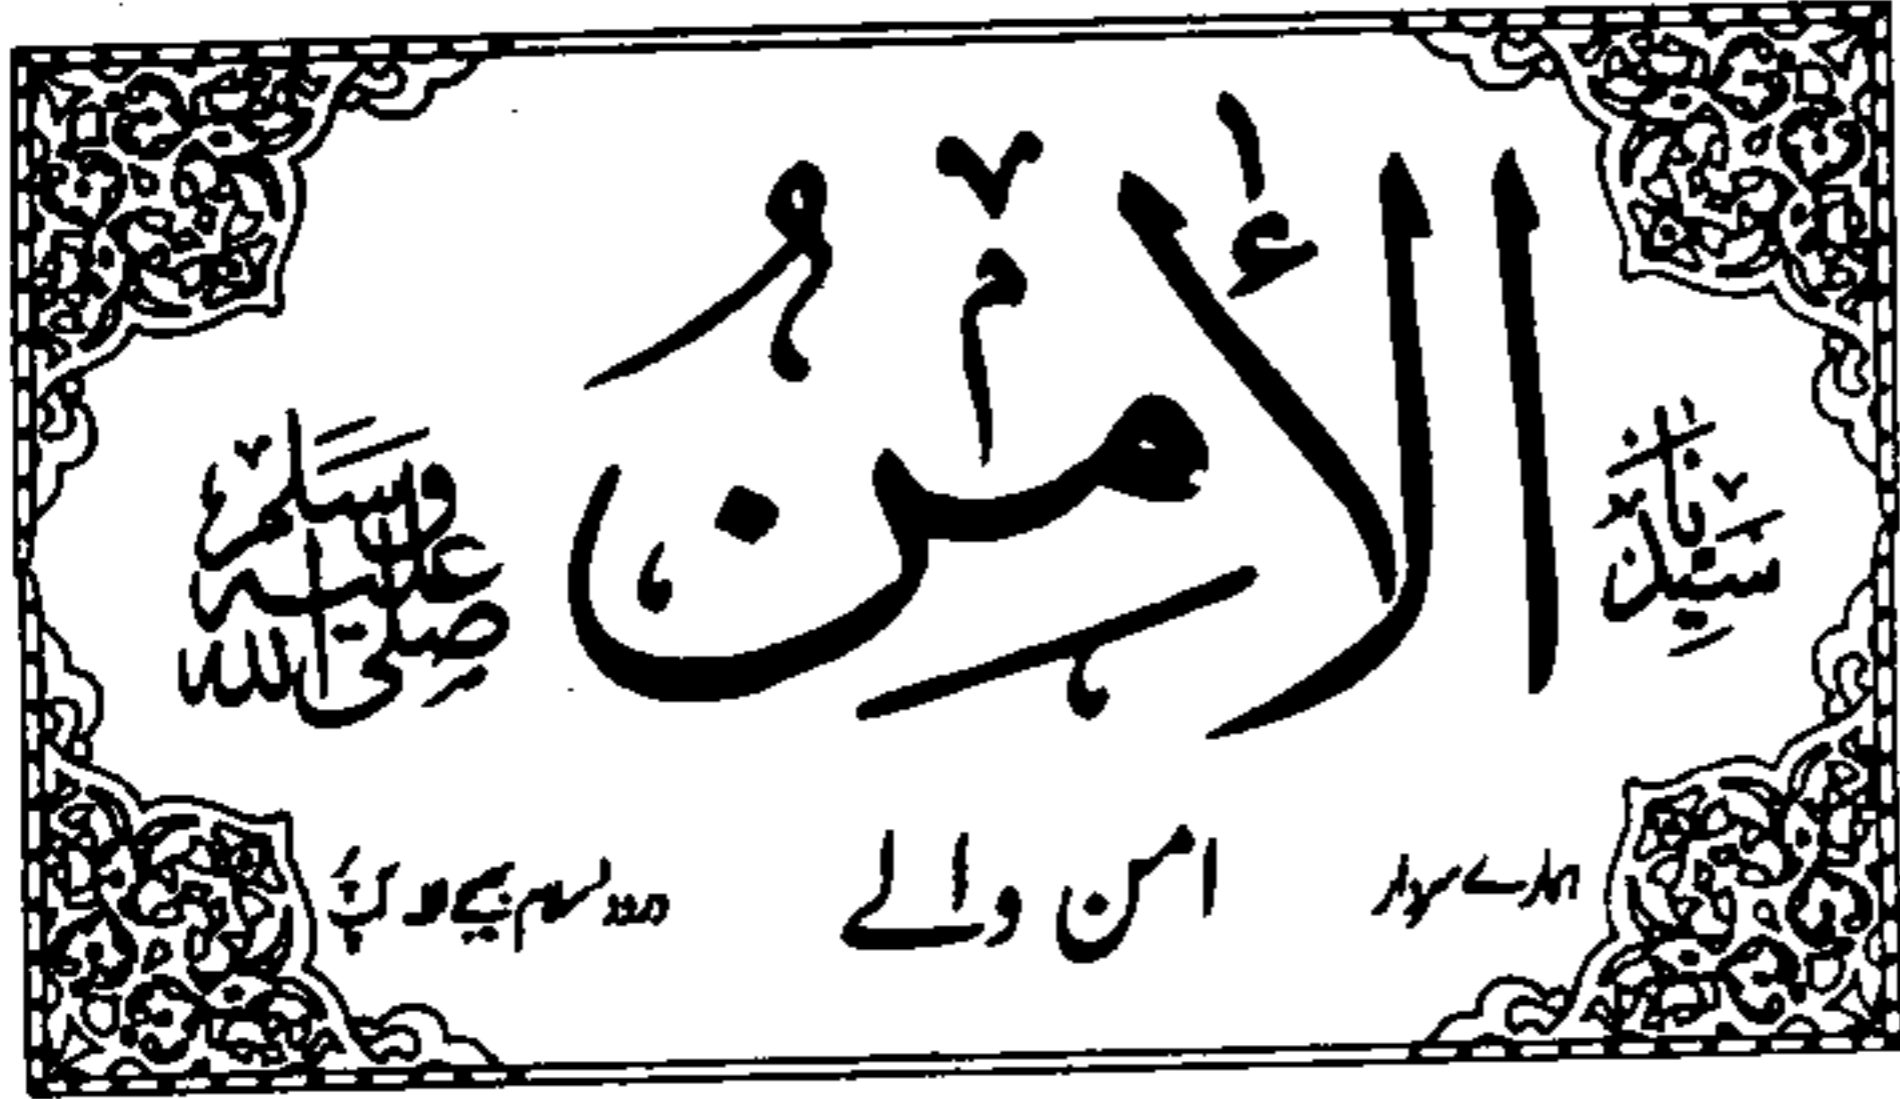 سَيِّدُنَا الْأَمْنُ صلى الله عليه وسلم
ہمارے سردار امن والے درود سلام بھیجے